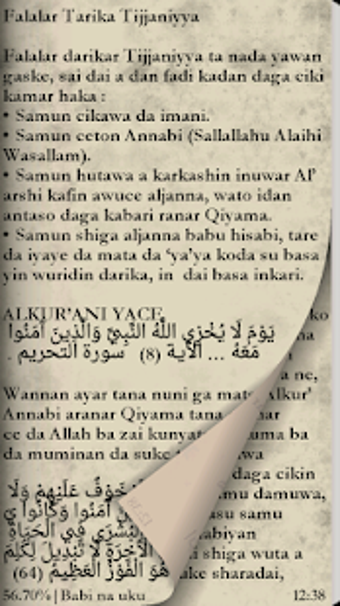 Falalar Tarika Tijjaniyya
Falalar darikar Tijjaniyya ta nada yawan
gaske, sai dai a dan fadi kadan daga ciki
kamar haka :
• Samun cikawa da imani.
• Samun ceton Annabi (Sallallahu Alaihi
Wasallam).
• Samun hutawa a karkashin inuwar Al'
arshi kafin awuce aljanna, wato idan
antaso daga kabari ranar Qiyama.
• Samun shiga aljanna babu hisabi, tare
da iyaye da mata da 'ya'ya koda su basa
yin wuridin darika, in dai basa inkari.
ALKUR'ANI YACE
يَوْمَ لَا يُخْزِي اللَّهُ النَّبِيَّ وَالَّذِينَ آمَنُوا
مَعَهُ ... الْآيَةَ (8) سورة التحريم .
a ne,
Wannan ayar tana nuni ga Alkur'
Annabi aranar Qiyama tana
ce da Allah ba zai kunyat uma ba
da muminan da suke
daga cikin
خَوْفٌ عَلَيْهِمْ وَلَا
mu damuwa,
آمَنُوا وَكَانُوا
asu samu
الْبُشْرَى فِي الْحَيَاةِ
abiyan
الْآخِرَةِ لَا تَبْدِيلَ لِكَلِمَ
shiga wuta a
هُوَ الْفَوْزُ الْعَظِيمُ (64)
ke sharadai,
56.70% | Babi na uku 12:38